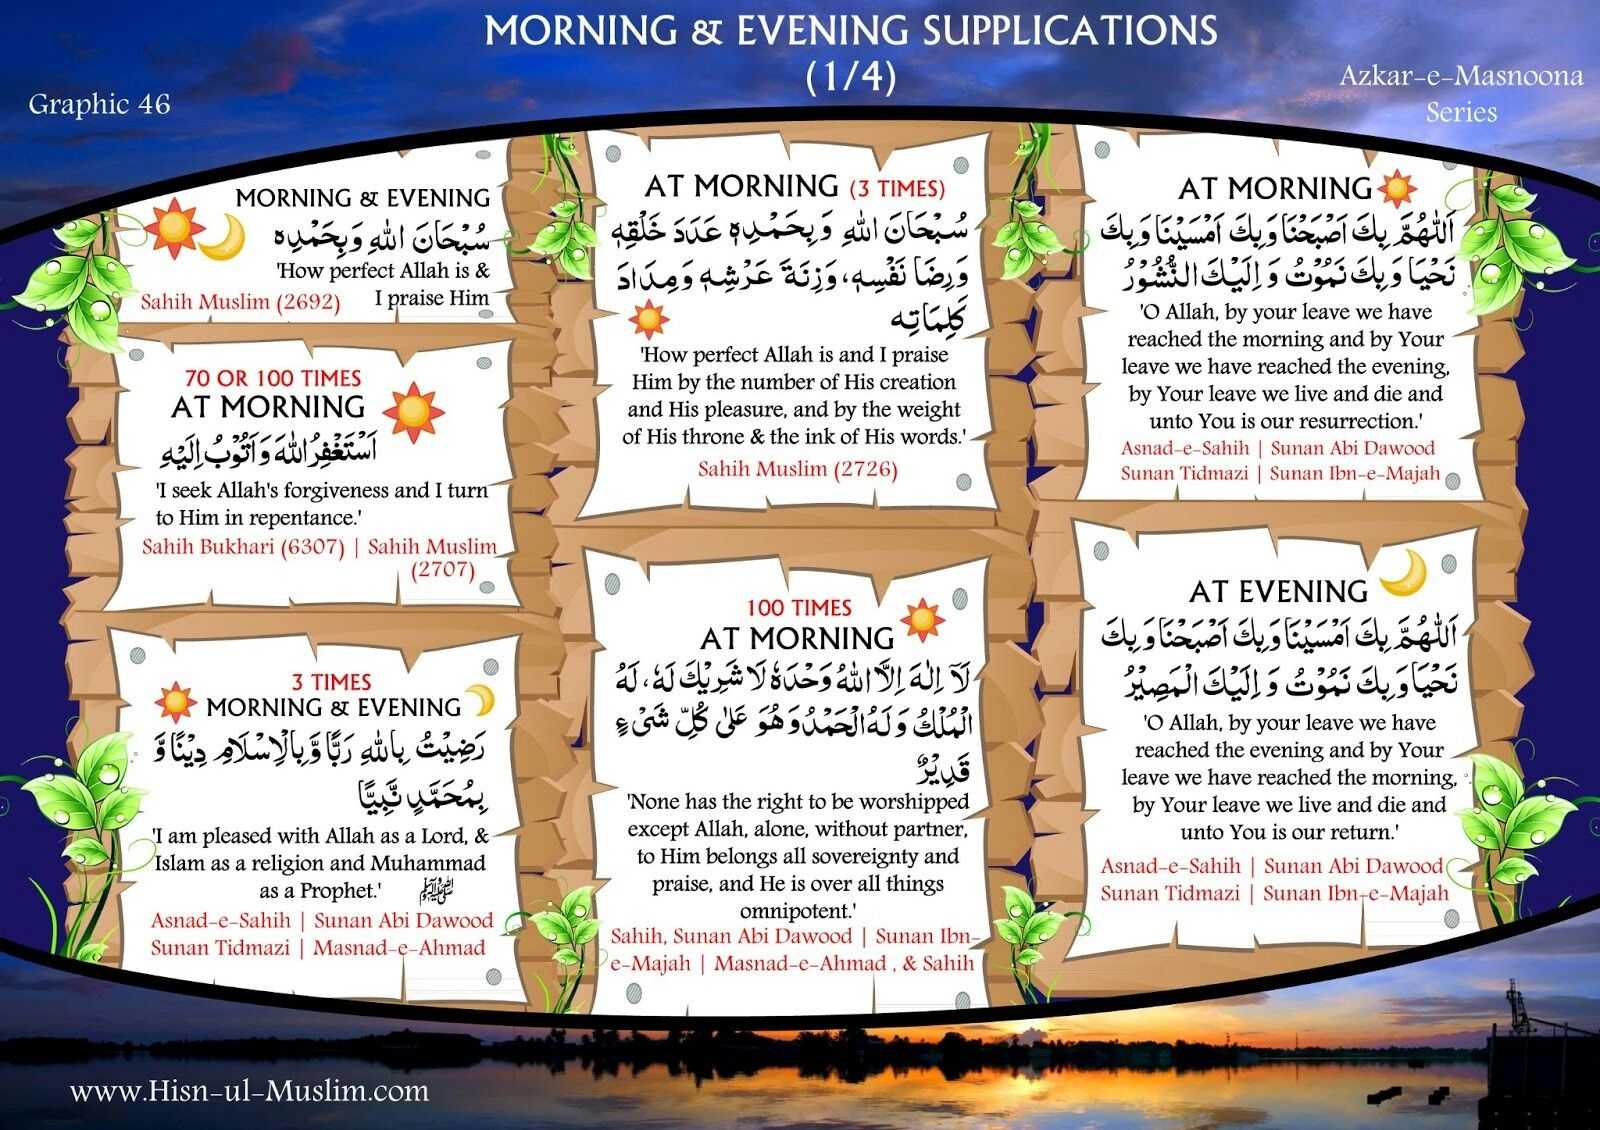 MORNING & EVENING SUPPLICATIONS
(1/4)
Graphic 46
Azkar-e-Masnoona
Series
MORNING & EVENING
سُبْحَانَ اللهِ وَبِحَمْدِهٖ
'How perfect Allah is &
I praise Him
Sahih Muslim (2692)
70 OR 100 TIMES
AT MORNING
اَسْتَغْفِرُ اللهَ وَاَتُوْبُ اِلَيْهِ
'I seek Allah's forgiveness and I turn
to Him in repentance.'
Sahih Bukhari (6307) | Sahih Muslim
(2707)
3 TIMES
MORNING & EVENING
رَضِيْتُ بِاللهِ رَبًّا وَّبِالْاِسْلَامِ دِيْنًا وَّ
بِمُحَمَّدٍ نَّبِيًّا
'I am pleased with Allah as a Lord, &
Islam as a religion and Muhammad
as a Prophet.' ﷺ
Asnad-e-Sahih | Sunan Abi Dawood
Sunan Tidmazi | Masnad-e-Ahmad
AT MORNING (3 TIMES)
سُبْحَانَ اللهِ وَبِحَمْدِهٖ عَدَدَ خَلْقِهٖ
وَرِضَا نَفْسِهٖ، وَزِنَةَ عَرْشِهٖ وَمِدَادَ
كَلِمَاتِهٖ
'How perfect Allah is and I praise
Him by the number of His creation
and His pleasure, and by the weight
of His throne & the ink of His words.'
Sahih Muslim (2726)
100 TIMES
AT MORNING
لَآ اِلٰهَ اِلَّا اللهُ وَحْدَهٗ لَا شَرِيْكَ لَهٗ، لَهُ
الْمُلْكُ وَلَهُ الْحَمْدُ وَهُوَ عَلٰى كُلِّ شَىْءٍ
قَدِيْرٌ
'None has the right to be worshipped
except Allah, alone, without partner,
to Him belongs all sovereignty and
praise, and He is over all things
omnipotent.'
Sahih, Sunan Abi Dawood | Sunan Ibn-
e-Majah | Masnad-e-Ahmad , & Sahih
AT MORNING
اَللّٰهُمَّ بِكَ اَصْبَحْنَا وَبِكَ اَمْسَيْنَا وَبِكَ
نَحْيَا وَبِكَ نَمُوْتُ وَ اِلَيْكَ النُّشُوْرُ
'O Allah, by your leave we have
reached the morning and by Your
leave we have reached the evening,
by Your leave we live and die and
unto You is our resurrection.'
Asnad-e-Sahih | Sunan Abi Dawood
Sunan Tidmazi | Sunan Ibn-e-Majah
AT EVENING
اَللّٰهُمَّ بِكَ اَمْسَيْنَا وَبِكَ اَصْبَحْنَا وَبِكَ
نَحْيَا وَبِكَ نَمُوْتُ وَ اِلَيْكَ الْمَصِيْرُ
'O Allah, by your leave we have
reached the evening and by Your
leave we have reached the morning,
by Your leave we live and die and
unto You is our return.'
Asnad-e-Sahih | Sunan Abi Dawood
Sunan Tidmazi | Sunan Ibn-e-Majah
www.Hisn-ul-Muslim.com